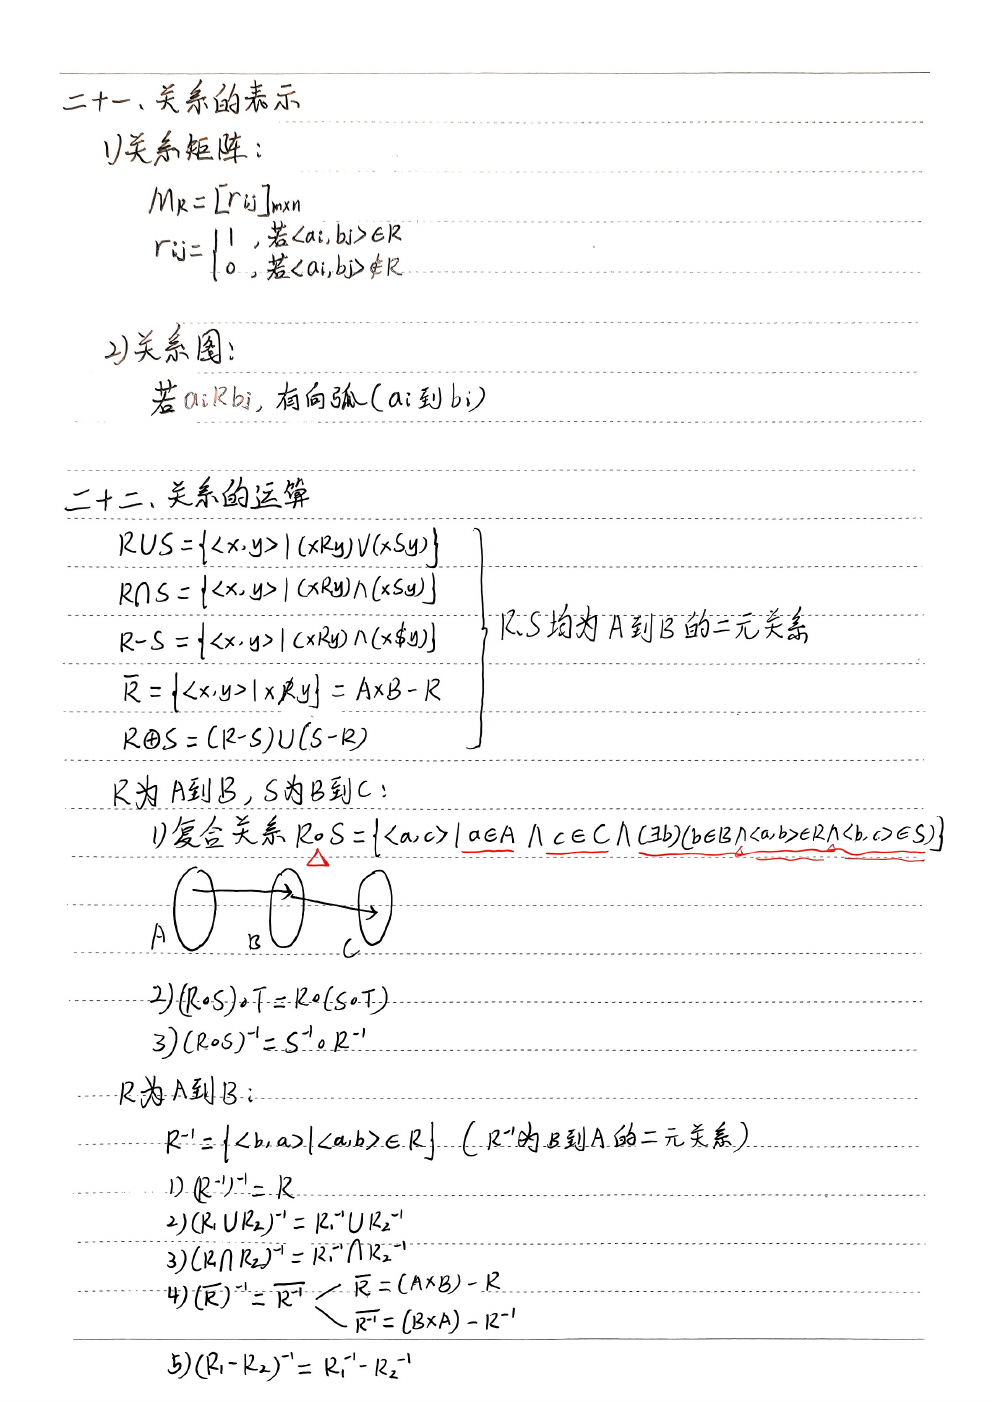 二十一、关系的表示
1)关系矩阵：
M_R=[rij]m×n
rij={1，若<ai,bj>∈R
0，若<ai,bj>∉R
2)关系图：
若aiRbj，有向弧(ai到bi)
二十二、关系的运算
R∪S={<x,y>|(xRy)∨(xSy)}
R∩S={<x,y>|(xRy)∧(xSy)}
R-S={<x,y>|(xRy)∧(x$y)}
R,S均为A到B的二元关系
R̅={<x,y>|xR̸y}=A×B-R
R⊕S=(R-S)∪(S-R)
R为A到B，S为B到C：
1)复合关系R∘S={<a,c>|a∈A∧c∈C∧(∃b)(b∈B∧<a,b>∈R∧<b,c>∈S)}
A B C
2)(R∘S)∘T=R∘(S∘T)
3)(R∘S)⁻¹=S⁻¹∘R⁻¹
R为A到B：
R⁻¹={<b,a>|<a,b>∈R}（R⁻¹为B到A的二元关系）
1)(R⁻¹)⁻¹=R
2)(R₁∪R₂)⁻¹=R₁⁻¹∪R₂⁻¹
3)(R₁∩R₂)⁻¹=R₁⁻¹∩R₂⁻¹
4)(R̅)⁻¹=\overline{R⁻¹} R̅=(A×B)-R
\overline{R⁻¹}=(B×A)-R⁻¹
5)(R₁-R₂)⁻¹=R₁⁻¹-R₂⁻¹